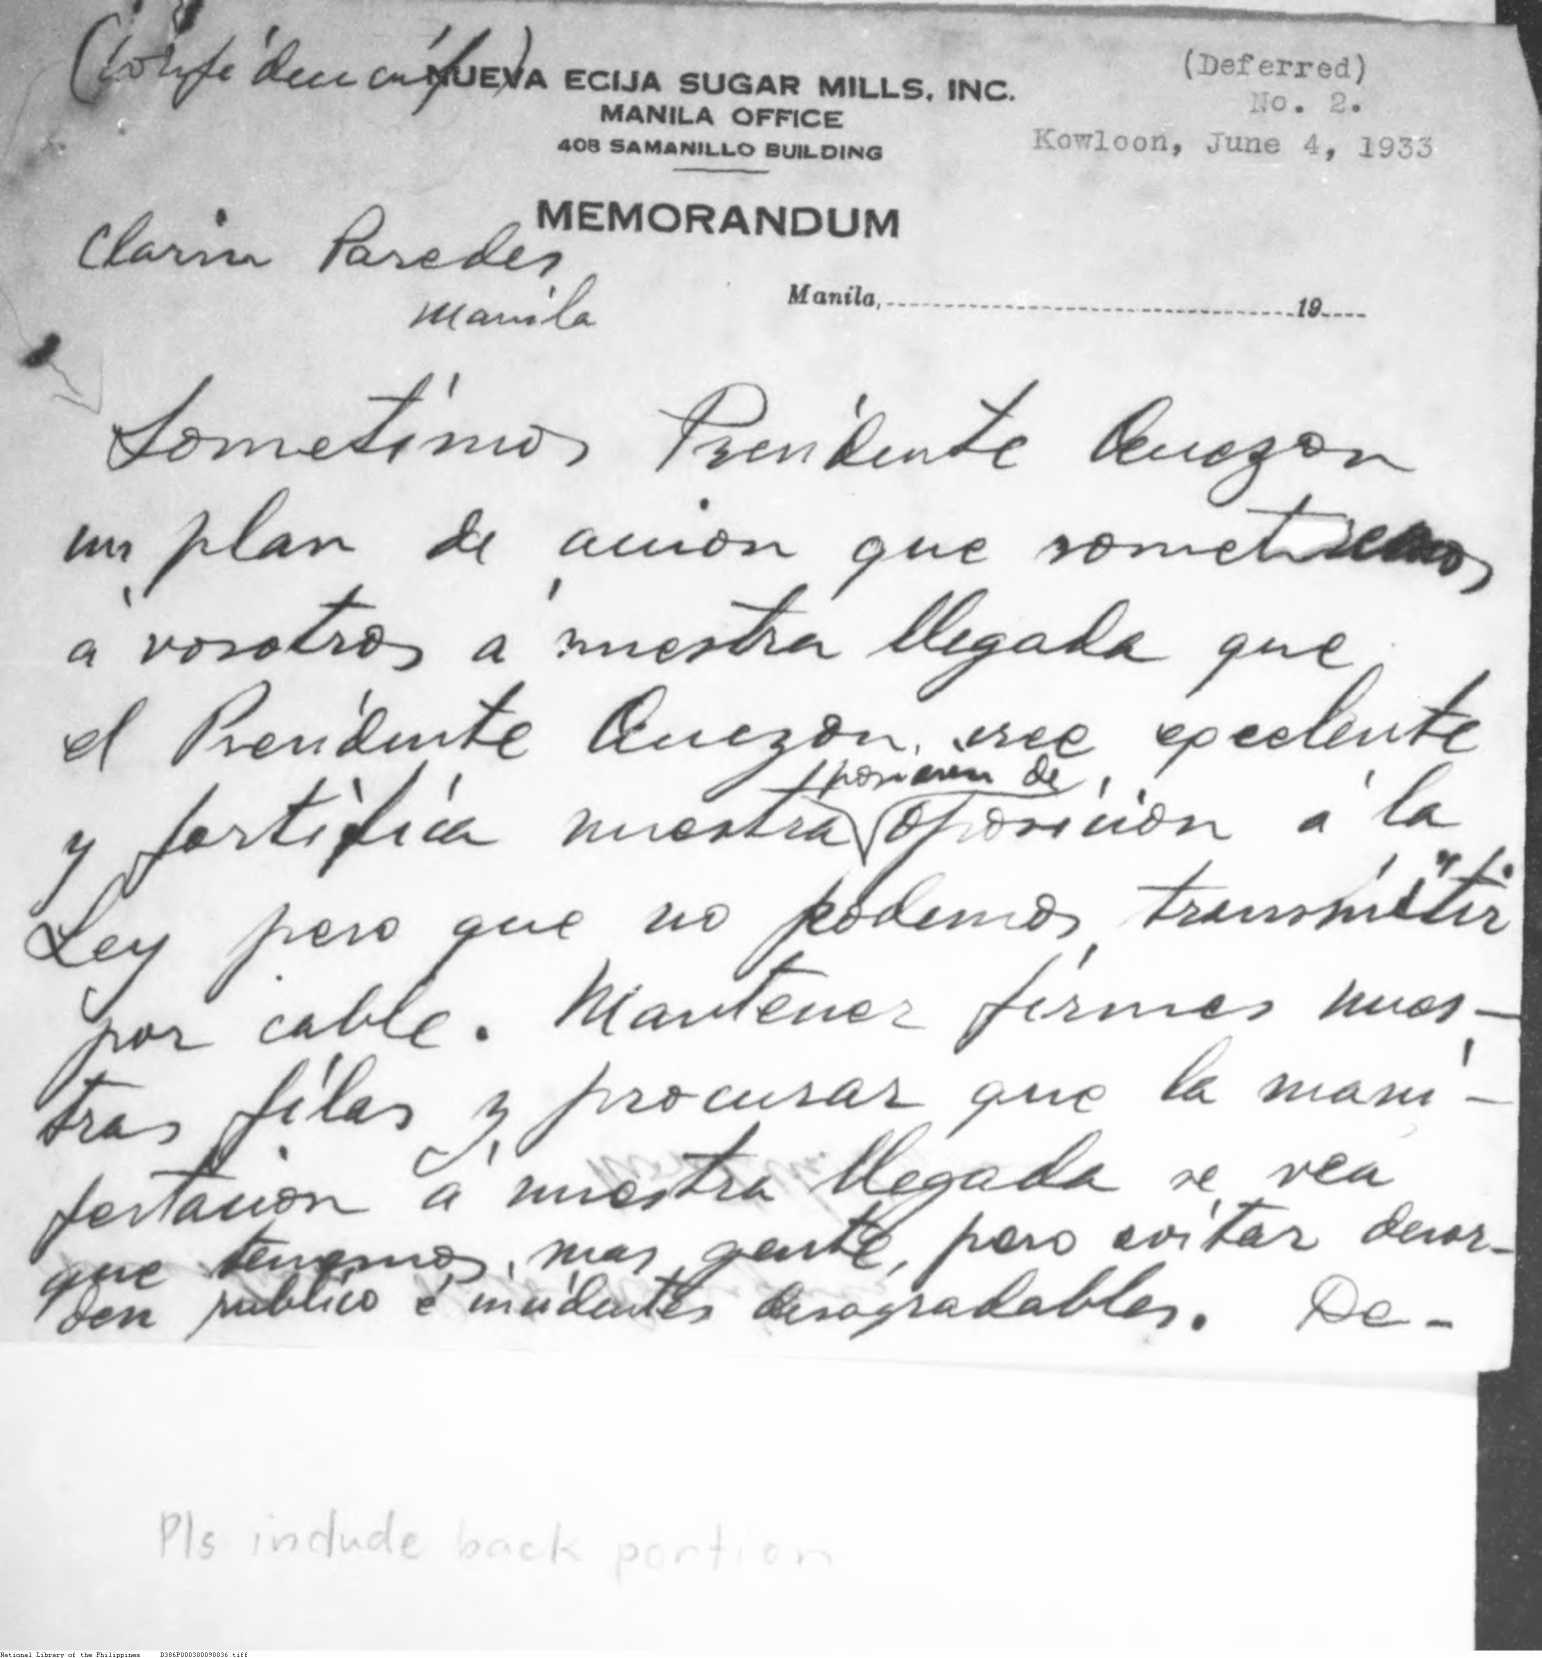 (Confidencial)
NUEVA ECIJA SUGAR MILLS, INC.
MANILA OFFICE
408 SAMANILLO BUILDING
(Deferred)
No. 2.
Kowloon, June 4, 1933
MEMORANDUM
Clarin Paredes
Manila
Manila, 19
Sometimos Presidente Quezon
un plan de accion que
á vosotros á nuestra llegada que
el Presidente Quezon cree excelente
y fortifica nuestra posicion de oposicion á la
Ley pero que no podemos transmitir
por cable. Mantener firmes nues-
tras filas y procurar que la mani-
festacion á nuestra llegada se vea
que tenemos mas gente, pero evitar desor-
den publico é incidentes desagradables. De-
Pls include back portion
National Library of the Philippines D386P000300098036.tiff